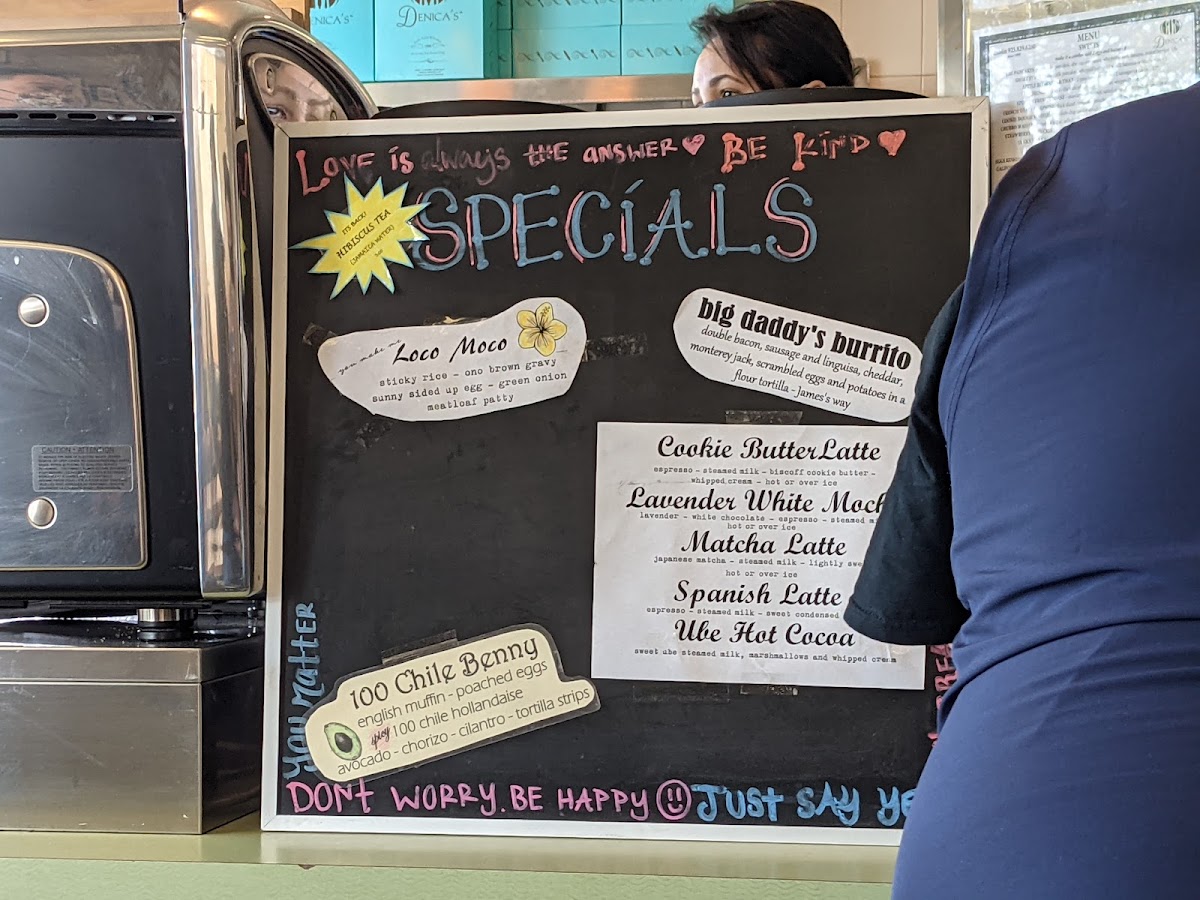 DENICA'S
DENICA'S
MENU
LOVE is always THE ANSWER BE KIND
SPECIALS
IT'S BACK!
HIBISCUS TEA
(JAMAICA WATER)
you make me Loco Moco
sticky rice - ono brown gravy
sunny sided up egg - green onion
meatloaf patty
big daddy's burrito
double bacon, sausage and linguisa, cheddar,
monterey jack, scrambled eggs and potatoes in a
flour tortilla - James's way
Cookie Butter Latte
espresso - steamed milk - biscoff cookie butter -
whipped cream - hot or over ice
Lavender White Moch
lavender - white chocolate - espresso - steamed mi
hot or over ice
Matcha Latte
japanese matcha - steamed milk - lightly swe
hot or over ice
Spanish Latte
espresso - steamed milk - sweet condensed
Ube Hot Cocoa
sweet ube steamed milk, marshmallows and whipped cream
100 Chile Benny
english muffin - poached eggs
spicy 100 chile hollandaise
avocado - chorizo - cilantro - tortilla strips
YOU MATTER
DONT WORRY. BE HAPPY JUST SAY YE
CAUTION - ATTENTION